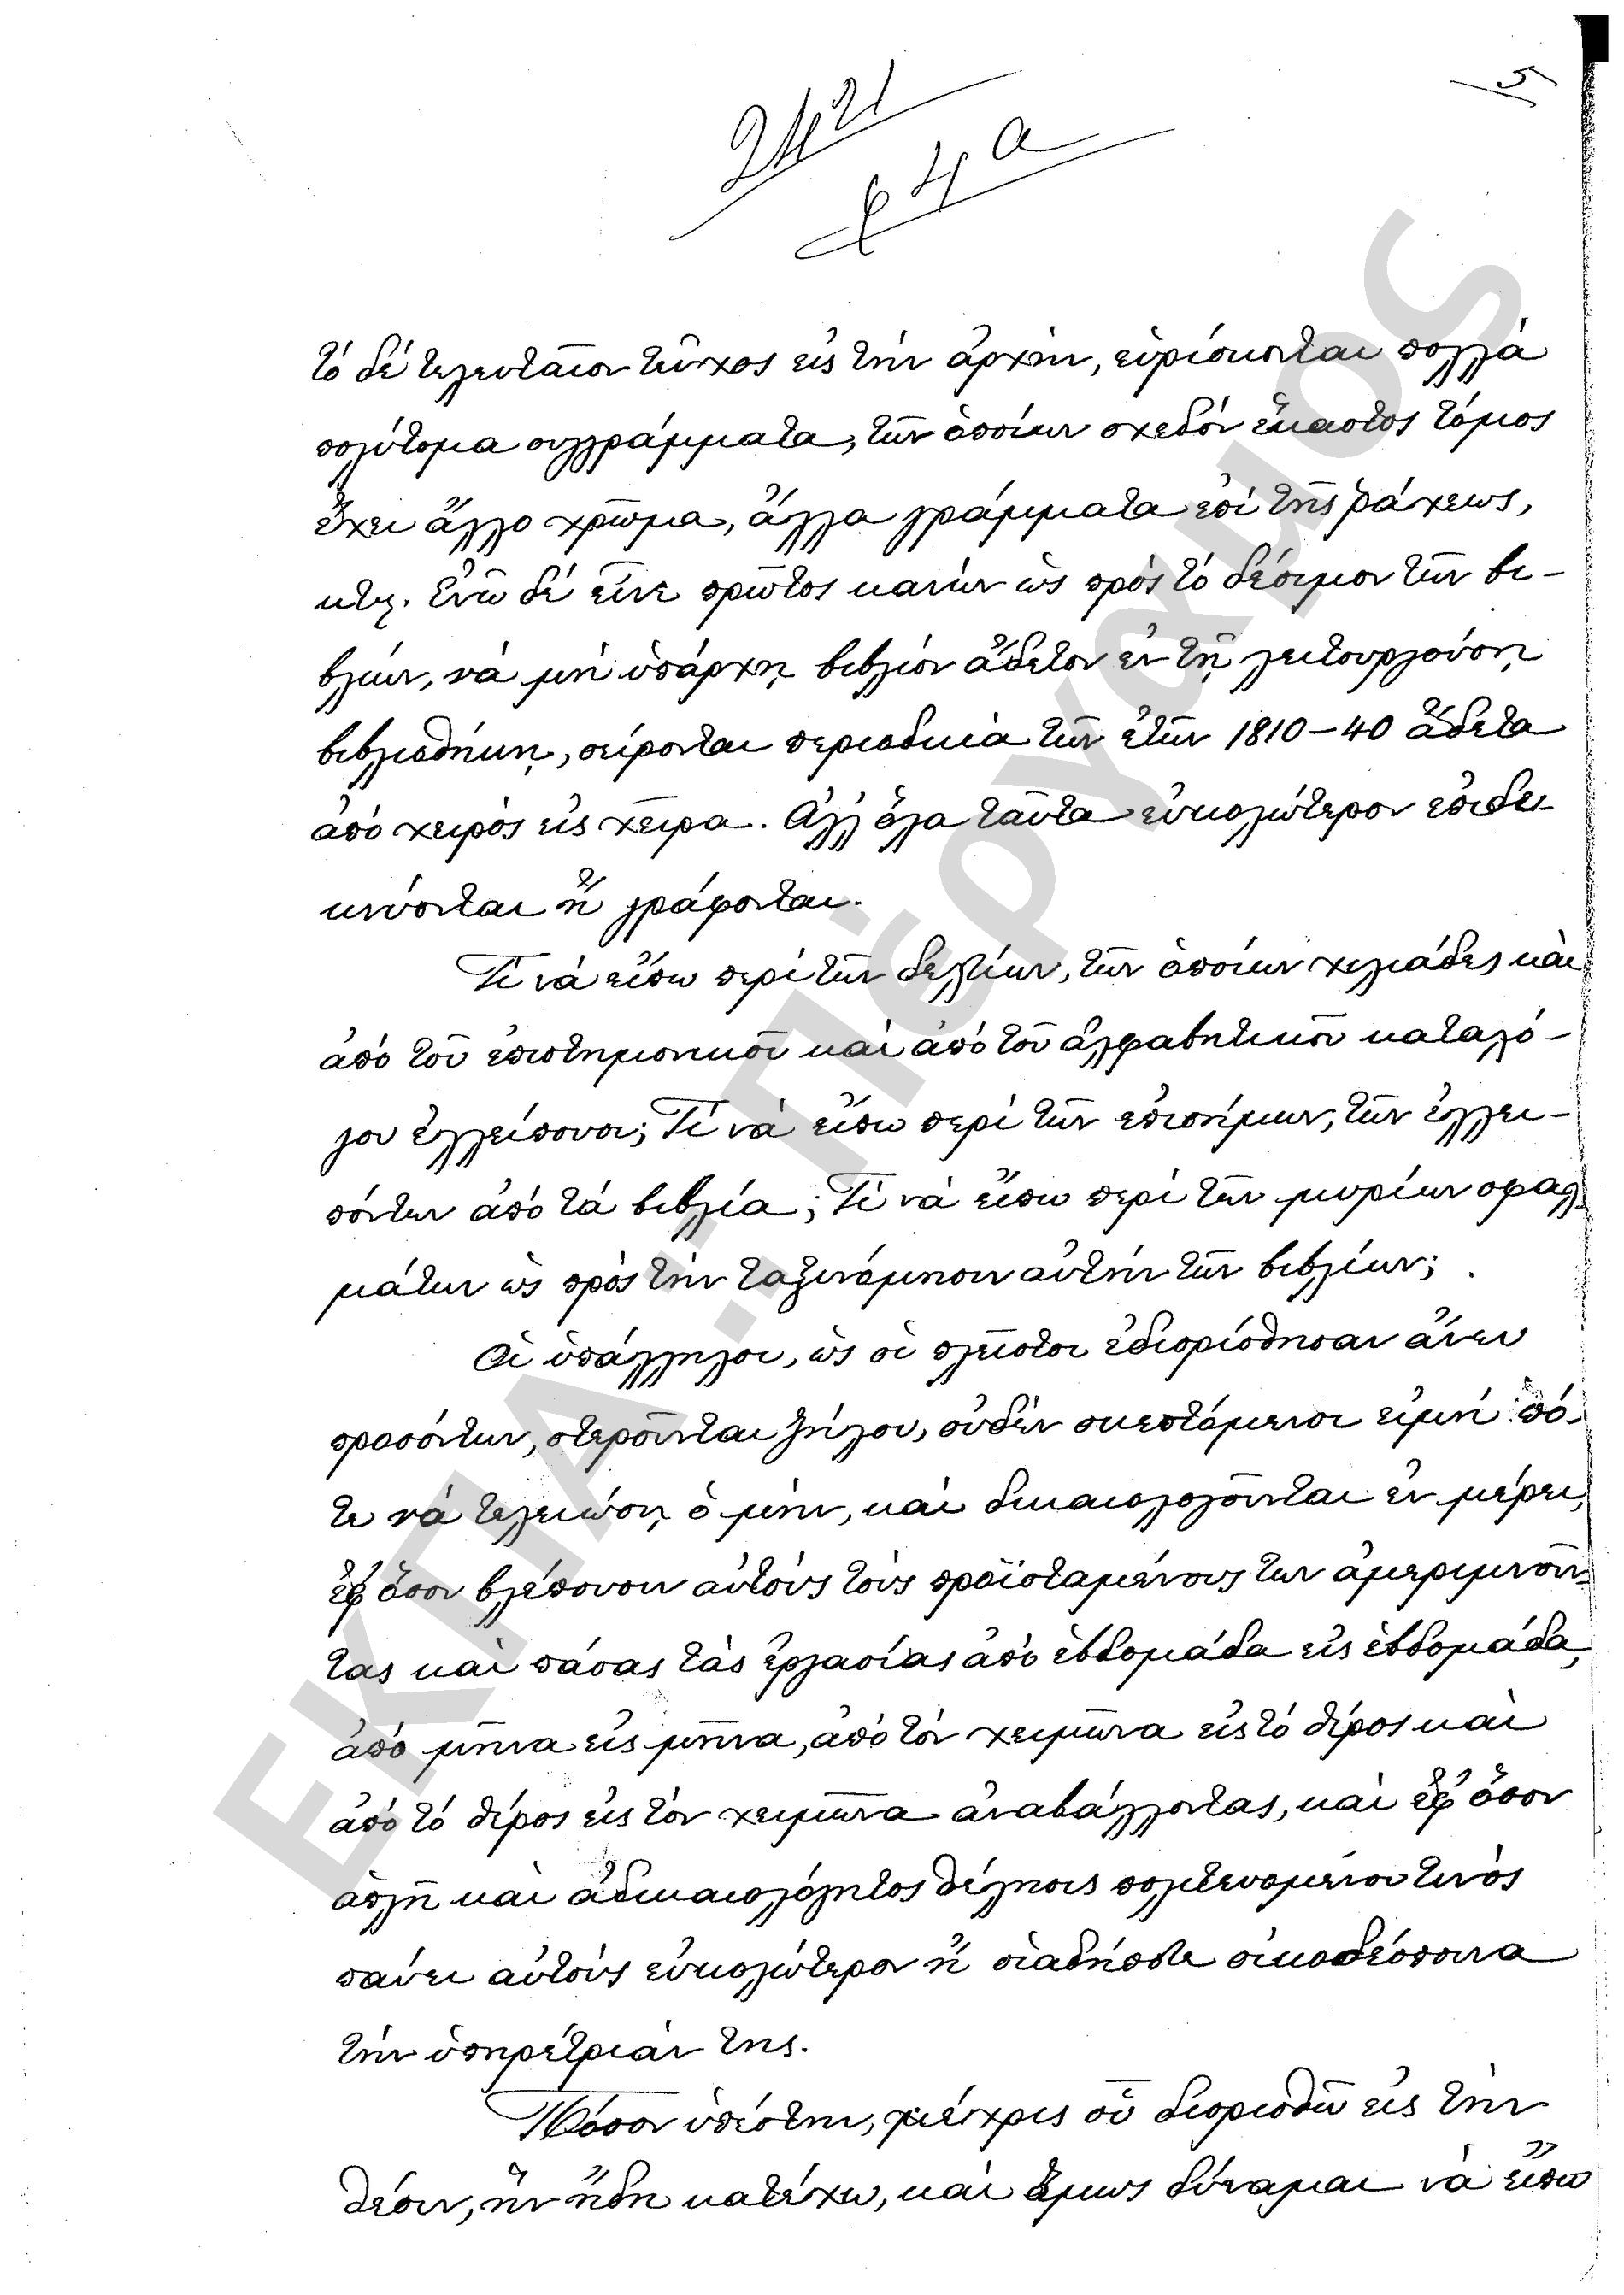 5
21
4α
τό δέ τελευταῖον τεῦχος εἰς τήν ἀρχήν, εὑρίσκονται πολλά
πολύτομα συγγράμματα, τῶν ὁποίων σχεδόν ἕκαστος τόμος
ἔχει ἄλλο χρῶμα, ἄλλα γράμματα ἐπί τῆς ῥάχεως,
κτλ. Ἐνῶ δέ εἶνε πρῶτος κανών ὡς πρός τό δέσιμον τῶν βι-
βλίων, νά μή ὑπάρχῃ βιβλίον ἄδετον ἐν τῇ λειτουργούσῃ
βιβλιοθήκῃ, σύρονται περιοδικά τῶν ἐτῶν 1810-40 ἄδετα
ἀπό χειρός εἰς χεῖρα. Ἀλλ' ὅλα ταῦτα εὐκολώτερον ἐπιδει-
κνύονται ἤ γράφονται.
Τί νά εἴπω περί τῶν δελτίων, τῶν ὁποίων χιλιάδες καί
ἀπό τοῦ ἐπιστημονικοῦ καί ἀπό τοῦ ἀλφαβητικοῦ καταλό-
γου ἐλλείπουσι; Τί νά εἴπω περί τῶν ἐπισήμων, τῶν ἐλλει-
πόντων ἀπό τά βιβλία; Τί νά εἴπω περί τῶν μυρίων σφαλ-
μάτων ὡς πρός τήν ταξινόμησιν αὐτήν τῶν βιβλίων;
Οἱ ὑπάλληλοι, ὡς οἱ πλεῖστοι ἐδιορίσθησαν ἄνευ
προσόντων, στεροῦνται ζήλου, οὐδέν σκεπτόμενοι εἰμή πό-
τε νά τελειώσῃ ὁ μήν, καί δικαιολογοῦνται ἐν μέρει,
ἐφ' ὅσον βλέπουσιν αὐτούς τούς προϊσταμένους των ἀμεριμνοῦν-
τας καί πάσας τάς ἐργασίας ἀπό ἑβδομάδα εἰς ἑβδομάδα,
ἀπό μῆνα εἰς μῆνα, ἀπό τόν χειμῶνα εἰς τό θέρος καί
ἀπό τό θέρος εἰς τόν χειμῶνα ἀναβάλλοντας, καί ἐφ' ὅσον
ἁπλῆ καί ἀδικαιολόγητος θέλησις πολιτευομένου τινός
παύει αὐτούς εὐκολώτερον ἤ οἱαδήποτε οἰκοδέσποινα
τήν ὑπηρέτριάν της.
Πόσον ὑπέστην, μέχρις οὗ διορισθῶ εἰς τήν
θέσιν, ἥν ἤδη κατέχω, καί ὅμως δύναμαι νά εἴπω
ΕΚΠΑ: Πέργαμος